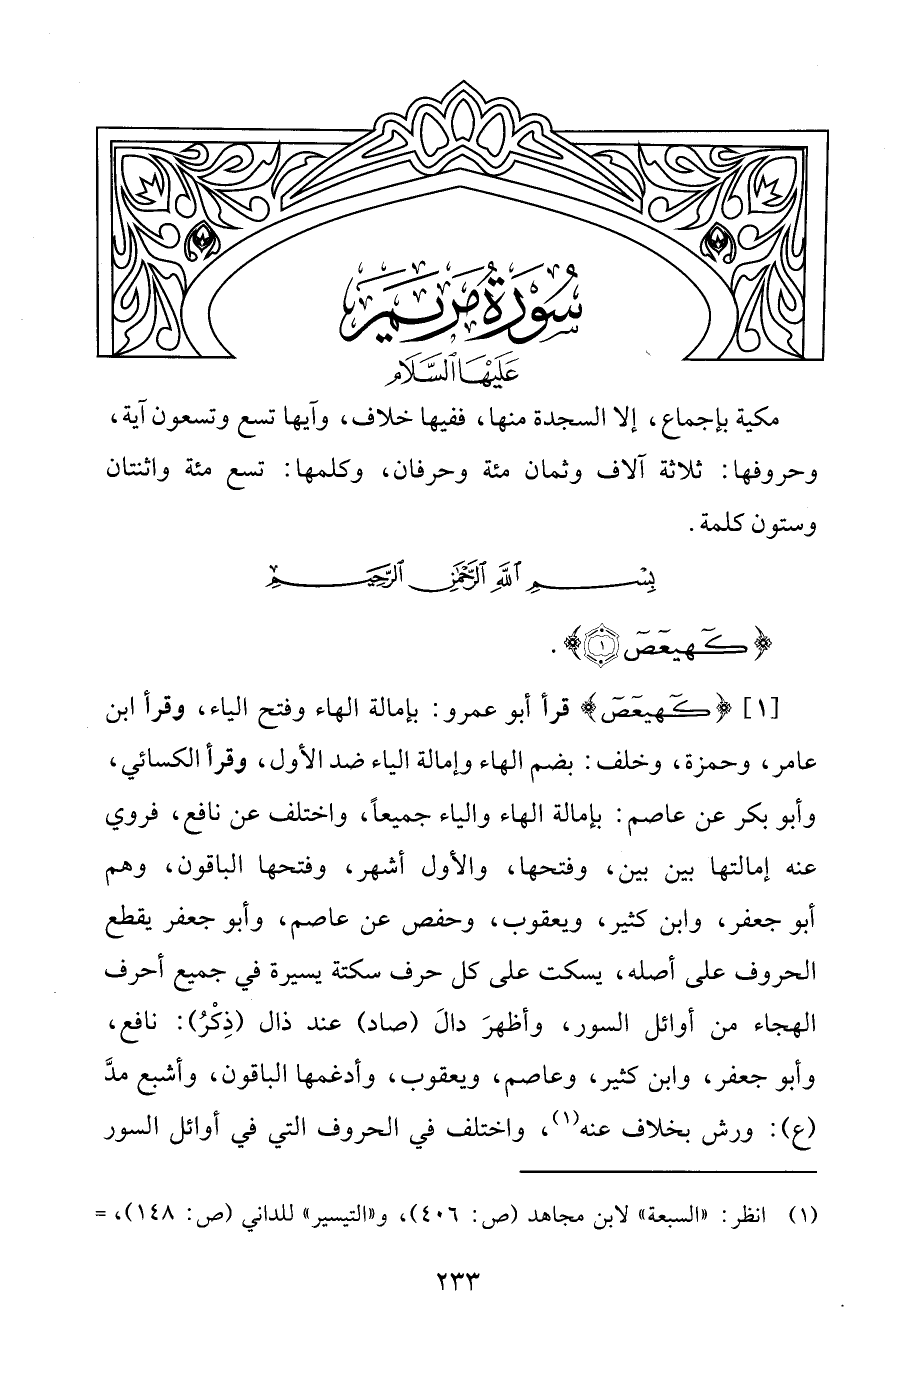 سُورَة مَريَم
عَلَيهَا السَّلَام
مكية بإجماع، إلا السجدة منها، ففيها خلاف، وآيها تسع وتسعون آية،
وحروفها: ثلاثة آلاف وثمان مئة وحرفان، وكلمها: تسع مئة واثنتان
وستون كلمة.
بِسْمِ ٱللَّهِ ٱلرَّحْمَٰنِ ٱلرَّحِيمِ
﴿كٓهيعٓصٓ (١)﴾.
[١] ﴿كٓهيعٓصٓ﴾ قرأ أبو عمرو: بإمالة الهاء وفتح الياء، وقرأ ابن
عامر، وحمزة، وخلف: بضم الهاء وإمالة الياء ضد الأول، وقرأ الكسائي،
وأبو بكر عن عاصم: بإمالة الهاء والياء جميعاً، واختلف عن نافع، فروي
عنه إمالتها بين بين، وفتحها، والأول أشهر، وفتحها الباقون، وهم
أبو جعفر، وابن كثير، ويعقوب، وحفص عن عاصم، وأبو جعفر يقطع
الحروف على أصله، يسكت على كل حرف سكتة يسيرة في جميع أحرف
الهجاء من أوائل السور، وأظهرَ دالَ (صاد) عند ذال (ذِكْرُ): نافع،
وأبو جعفر، وابن كثير، وعاصم، ويعقوب، وأدغمها الباقون، وأشبع مدَّ
(ع): ورش بخلاف عنه(١)، واختلف في الحروف التي في أوائل السور
(١) انظر: «السبعة» لابن مجاهد (ص: ٤٠٦)، و«التيسير» للداني (ص: ١٤٨)، =
٢٣٣